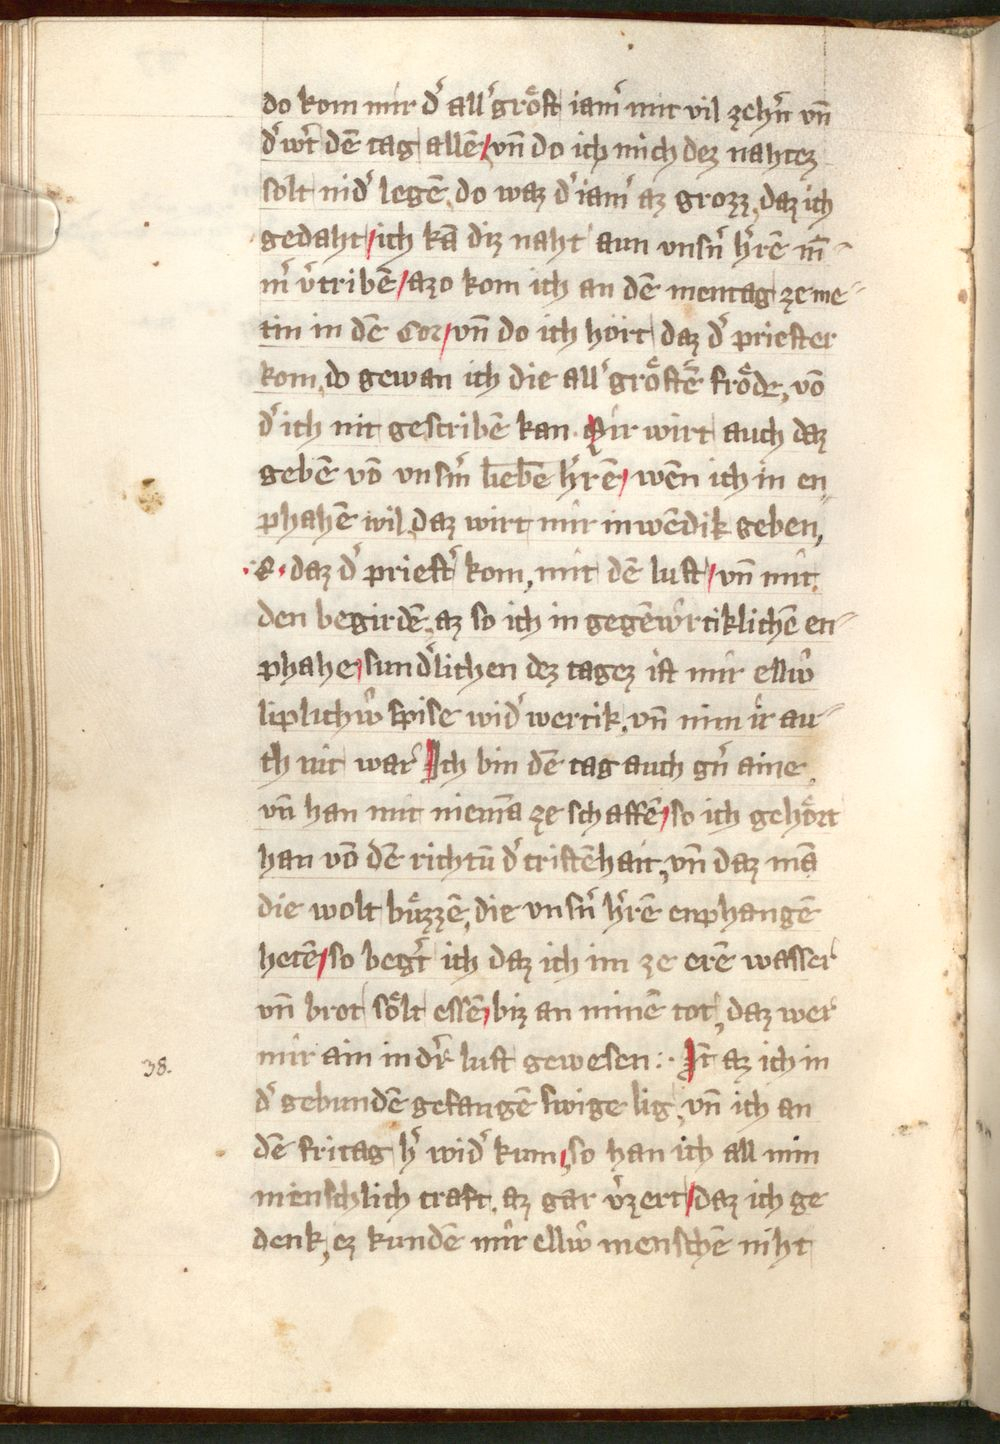 do kom mir d᾽ all᾽ gröst iam᾽ mit vil zeh᾽n vn̄
d᾽ w᾽t dē tag allē / vn̄ do ich mich dez nahtez
solt nid᾽ legē do waz d᾽ iam᾽ az grozz, daz ich
gedaht / ich kā diz naht aun vns᾽n h᾽rē
m᾽ v᾽tribē / azo kom ich an dē mentag ze me-
tin in dē Cor / vn̄ do ich hört daz d᾽ priester
kom, do gewan ich die all᾽ gröstē fröde, vō
d᾽ ich nit gescribē kan. Mir wirt auch daz
gebē vō vns᾽m liebē h᾽rē / wēn ich in en-
phahē wil daz wirt mir inwēdik geben,
·e· daz d᾽ priest᾽ kom, mit dē lust / vn̄ mit
den begirdē, az so ich in gegēw᾽rtiklichē en-
phahe / sund᾽lichen dez tagez ist mir ellw̉
liplichw̉ spise wid᾽ wertik, vn̄ nim ir au-
ch nit war᾽ Ich bin dē tag auch g᾽n aine,
vn̄ han mit niemā ze schaffē / so ich gehört
han vō dē richtū d᾽ cristēhait, vn̄ daz mā
die wolt büzzē, die vns᾽n h᾽rē enphangē
hetē / so beg᾽t ich daz ich im ze erē wasser
vn̄ brot sölt essē / biz an minē tot, daz wer
mir ain ind᾽r lust gewesen :· It̄ az ich in
38.
d᾽ gebundē gefangē swige lig, vn̄ ich an
dē fritag h᾽ wid᾽ kum / so han ich all min
menschlich craft, az gar v᾽zert / daz ich ge
denk, ez kundē mir ellw̉ menschē niht